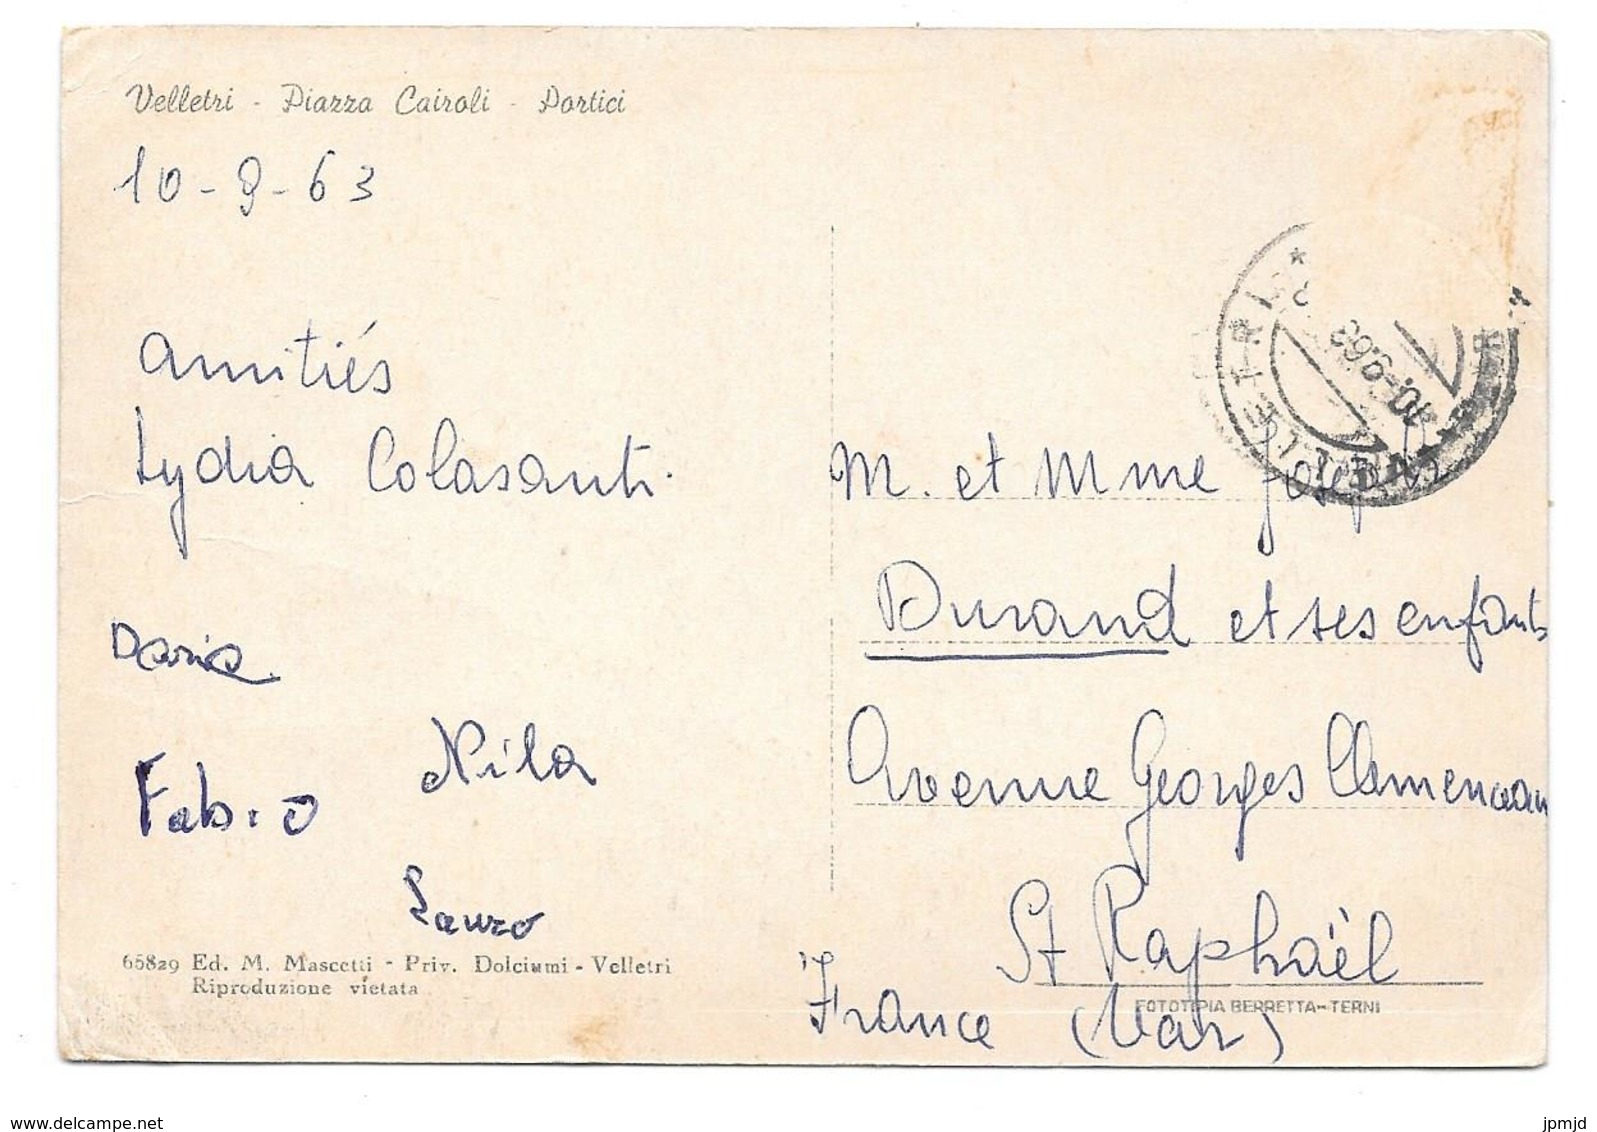 Velletri - Piazza Cairoli - Portici
10-9-63
amitiés
Lydia Colasanti.
Daria
Nila
Fabio
Lauro
65829 Ed. M. Mascetti - Priv. Dolciumi - Velletri
Riproduzione vietata
10.-9.63
M. et Mme Joseph
Durand et ses enfants
Avenue Georges Clemenceau
St Raphaël
France (Var)
FOTOTIPIA BERRETTA-TERNI
www.delcampe.net
jpmjd